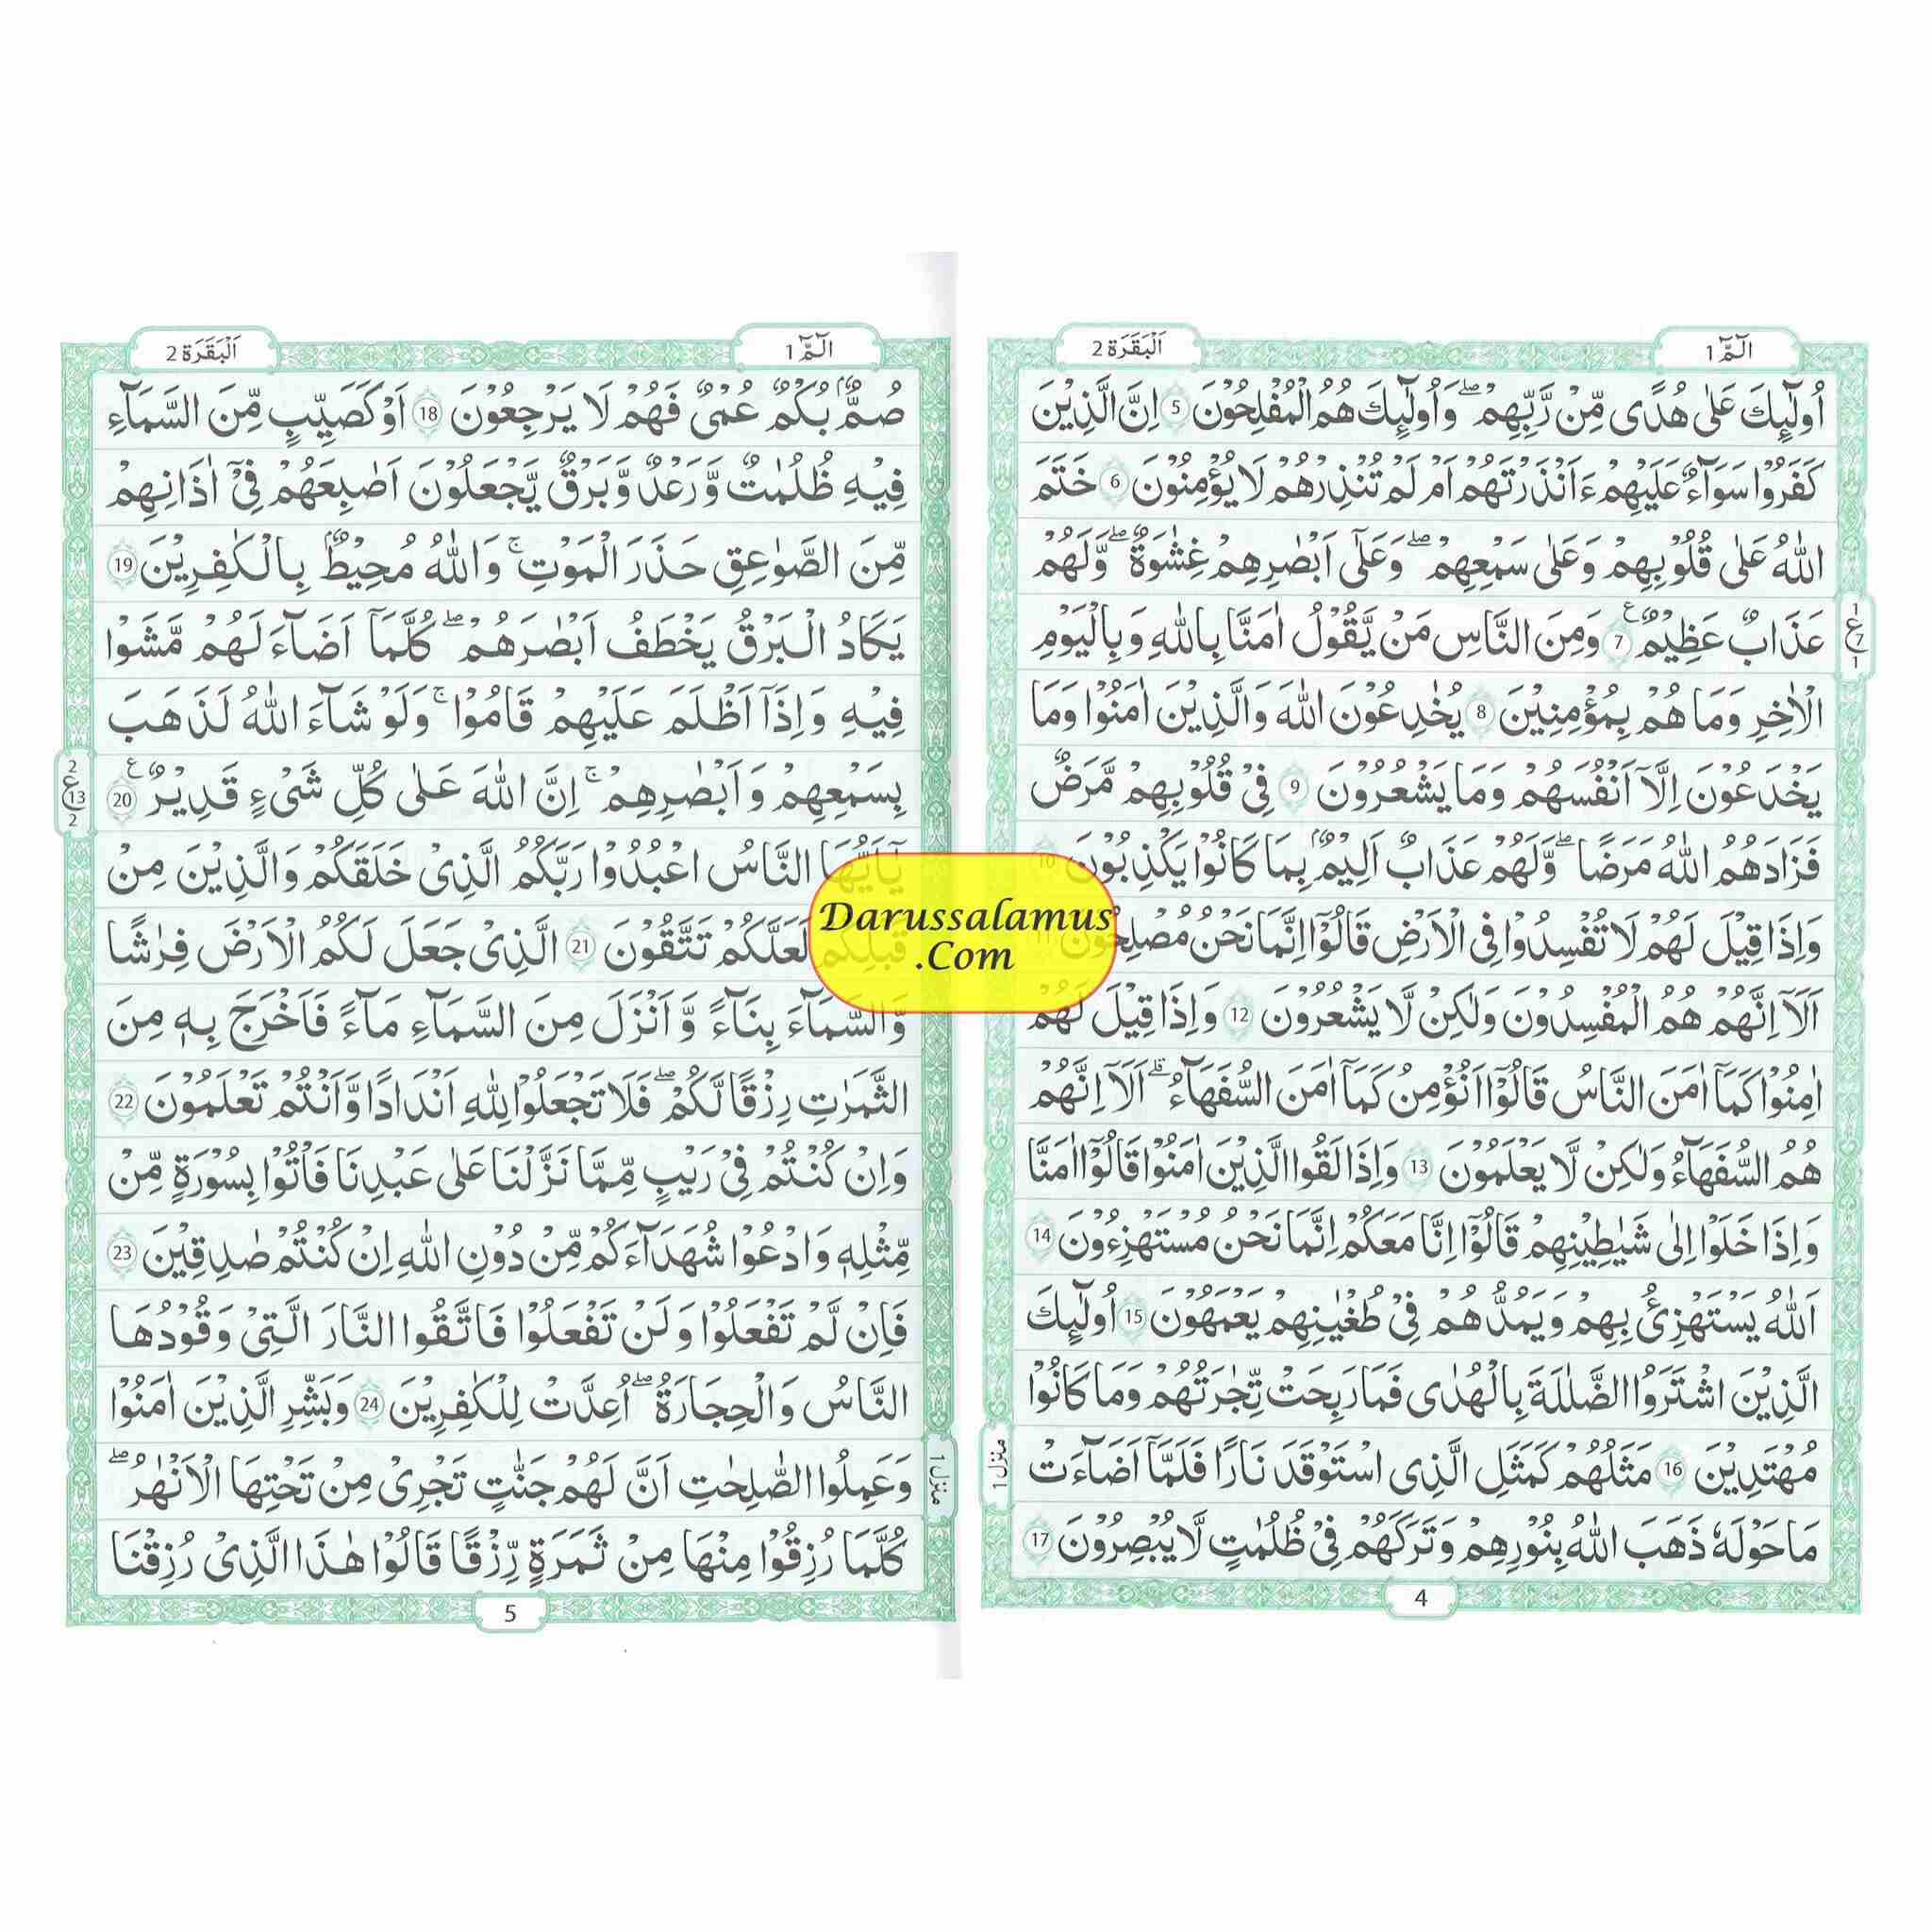 الٓمّٓ 1
اَلْبَقَرَة 2
اُولٰٓئِكَ عَلٰى هُدًى مِّنْ رَّبِّهِمْ ۖ وَاُولٰٓئِكَ هُمُ الْمُفْلِحُوْنَ 5 اِنَّ الَّذِيْنَ
كَفَرُوْا سَوَآءٌ عَلَيْهِمْ ءَاَنْذَرْتَهُمْ اَمْ لَمْ تُنْذِرْهُمْ لَا يُؤْمِنُوْنَ 6 خَتَمَ
اللّٰهُ عَلٰى قُلُوْبِهِمْ وَعَلٰى سَمْعِهِمْ ۖ وَعَلٰٓى اَبْصٰرِهِمْ غِشٰوَةٌ ۖ وَّلَهُمْ
عَذَابٌ عَظِيْمٌ ع 7 وَمِنَ النَّاسِ مَنْ يَّقُوْلُ اٰمَنَّا بِاللّٰهِ وَبِالْيَوْمِ
1 ع 7 1
الْاٰخِرِ وَمَا هُمْ بِمُؤْمِنِيْنَ 8 يُخٰدِعُوْنَ اللّٰهَ وَالَّذِيْنَ اٰمَنُوْا وَمَا
يَخْدَعُوْنَ اِلَّآ اَنْفُسَهُمْ وَمَا يَشْعُرُوْنَ 9 فِيْ قُلُوْبِهِمْ مَّرَضٌ
فَزَادَهُمُ اللّٰهُ مَرَضًا ۖ وَّلَهُمْ عَذَابٌ اَلِيْمٌ بِمَا كَانُوْا يَكْذِبُوْنَ 10
وَاِذَا قِيْلَ لَهُمْ لَا تُفْسِدُوْا فِى الْاَرْضِ قَالُوْٓا اِنَّمَا نَحْنُ مُصْلِحُوْنَ 11
اَلَآ اِنَّهُمْ هُمُ الْمُفْسِدُوْنَ وَلٰكِنْ لَّا يَشْعُرُوْنَ 12 وَاِذَا قِيْلَ لَهُمْ
اٰمِنُوْا كَمَآ اٰمَنَ النَّاسُ قَالُوْٓا اَنُؤْمِنُ كَمَآ اٰمَنَ السُّفَهَآءُ ۗ اَلَآ اِنَّهُمْ
هُمُ السُّفَهَآءُ وَلٰكِنْ لَّا يَعْلَمُوْنَ 13 وَاِذَا لَقُوا الَّذِيْنَ اٰمَنُوْا قَالُوْٓا اٰمَنَّا
وَاِذَا خَلَوْا اِلٰى شَيٰطِيْنِهِمْ قَالُوْٓا اِنَّا مَعَكُمْ اِنَّمَا نَحْنُ مُسْتَهْزِءُوْنَ 14
اَللّٰهُ يَسْتَهْزِئُ بِهِمْ وَيَمُدُّهُمْ فِيْ طُغْيٰنِهِمْ يَعْمَهُوْنَ 15 اُولٰٓئِكَ
الَّذِيْنَ اشْتَرَوُا الضَّلٰلَةَ بِالْهُدٰى فَمَا رَبِحَتْ تِّجٰرَتُهُمْ وَمَا كَانُوْا
مُهْتَدِيْنَ 16 مَثَلُهُمْ كَمَثَلِ الَّذِى اسْتَوْقَدَ نَارًا فَلَمَّآ اَضَآءَتْ
مَا حَوْلَهٗ ذَهَبَ اللّٰهُ بِنُوْرِهِمْ وَتَرَكَهُمْ فِيْ ظُلُمٰتٍ لَّا يُبْصِرُوْنَ 17
منزل 1
4
الٓمّٓ 1
اَلْبَقَرَة 2
صُمٌّۢ بُكْمٌ عُمْىٌ فَهُمْ لَا يَرْجِعُوْنَ 18 اَوْ كَصَيِّبٍ مِّنَ السَّمَآءِ
فِيْهِ ظُلُمٰتٌ وَّرَعْدٌ وَّبَرْقٌ يَّجْعَلُوْنَ اَصٰبِعَهُمْ فِيْٓ اٰذَانِهِمْ
مِّنَ الصَّوٰعِقِ حَذَرَ الْمَوْتِ ۚ وَاللّٰهُ مُحِيْطٌۢ بِالْكٰفِرِيْنَ 19
يَكَادُ الْبَرْقُ يَخْطَفُ اَبْصٰرَهُمْ ۖ كُلَّمَآ اَضَآءَ لَهُمْ مَّشَوْا
فِيْهِ وَاِذَآ اَظْلَمَ عَلَيْهِمْ قَامُوْا ۚ وَلَوْ شَآءَ اللّٰهُ لَذَهَبَ
بِسَمْعِهِمْ وَاَبْصٰرِهِمْ ۚ اِنَّ اللّٰهَ عَلٰى كُلِّ شَىْءٍ قَدِيْرٌ ع 20
2 ع 13 2
يٰٓاَيُّهَا النَّاسُ اعْبُدُوْا رَبَّكُمُ الَّذِيْ خَلَقَكُمْ وَالَّذِيْنَ مِنْ
قَبْلِكُمْ لَعَلَّكُمْ تَتَّقُوْنَ 21 الَّذِيْ جَعَلَ لَكُمُ الْاَرْضَ فِرٰشًا
وَّالسَّمَآءَ بِنَآءً وَّاَنْزَلَ مِنَ السَّمَآءِ مَآءً فَاَخْرَجَ بِهٖ مِنَ
الثَّمَرٰتِ رِزْقًا لَّكُمْ ۖ فَلَا تَجْعَلُوْا لِلّٰهِ اَنْدَادًا وَّاَنْتُمْ تَعْلَمُوْنَ 22
وَاِنْ كُنْتُمْ فِيْ رَيْبٍ مِّمَّا نَزَّلْنَا عَلٰى عَبْدِنَا فَاْتُوْا بِسُوْرَةٍ مِّنْ
مِّثْلِهٖ وَادْعُوْا شُهَدَآءَكُمْ مِّنْ دُوْنِ اللّٰهِ اِنْ كُنْتُمْ صٰدِقِيْنَ 23
فَاِنْ لَّمْ تَفْعَلُوْا وَلَنْ تَفْعَلُوْا فَاتَّقُوا النَّارَ الَّتِيْ وَقُوْدُهَا
النَّاسُ وَالْحِجَارَةُ ۖ اُعِدَّتْ لِلْكٰفِرِيْنَ 24 وَبَشِّرِ الَّذِيْنَ اٰمَنُوْا
وَعَمِلُوا الصّٰلِحٰتِ اَنَّ لَهُمْ جَنّٰتٍ تَجْرِيْ مِنْ تَحْتِهَا الْاَنْهٰرُ ۖ
كُلَّمَا رُزِقُوْا مِنْهَا مِنْ ثَمَرَةٍ رِّزْقًا قَالُوْا هٰذَا الَّذِيْ رُزِقْنَا
منزل 1
5
Darussalamus
.Com